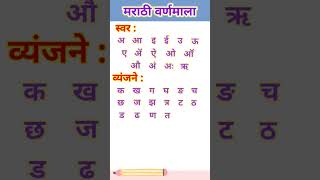 मराठी वर्णमाला
स्वर :
अ आ इ ई उ ऊ
ए ॲ ऐ ओ ऑ
औ अं अः ऋ
व्यंजने :
क ख ग घ ङ च
छ ज झ त्र ट ठ
ड ढ ण त